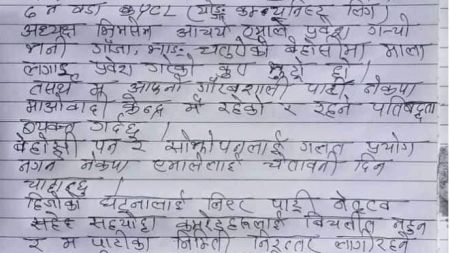 ६ नं वडा का YCL (योङ्ग कम्युनिष्ट लिग)
अध्यक्ष भिमसेन आचार्य एमाले प्रवेश गर्‍यो
भनी गाँजा, भाङ धतुरोको बेहोस (मा) माला
लगाई प्रवेश गरेको कुरा झुठो हो।
तसर्थ म आफ्नो गौरवशाली पार्टी नेकपा
माओवादी केन्द्र मै रहेको र रहने प्रतिबद्धता
व्यक्त गर्दछु।
बेहोसी पन र सोझोपनलाई गलत प्रयोग
नगर्न नेकपा एमालेलाई चेतावनी दिन
चाहन्छु।
हिजोको घटनालाई लिएर पार्टी नेतृत्व
सहित सहयोद्धा कमरेडहरूलाई विचलीत नहुन
र म पार्टीको निम्ति निरन्तर लागीरहने